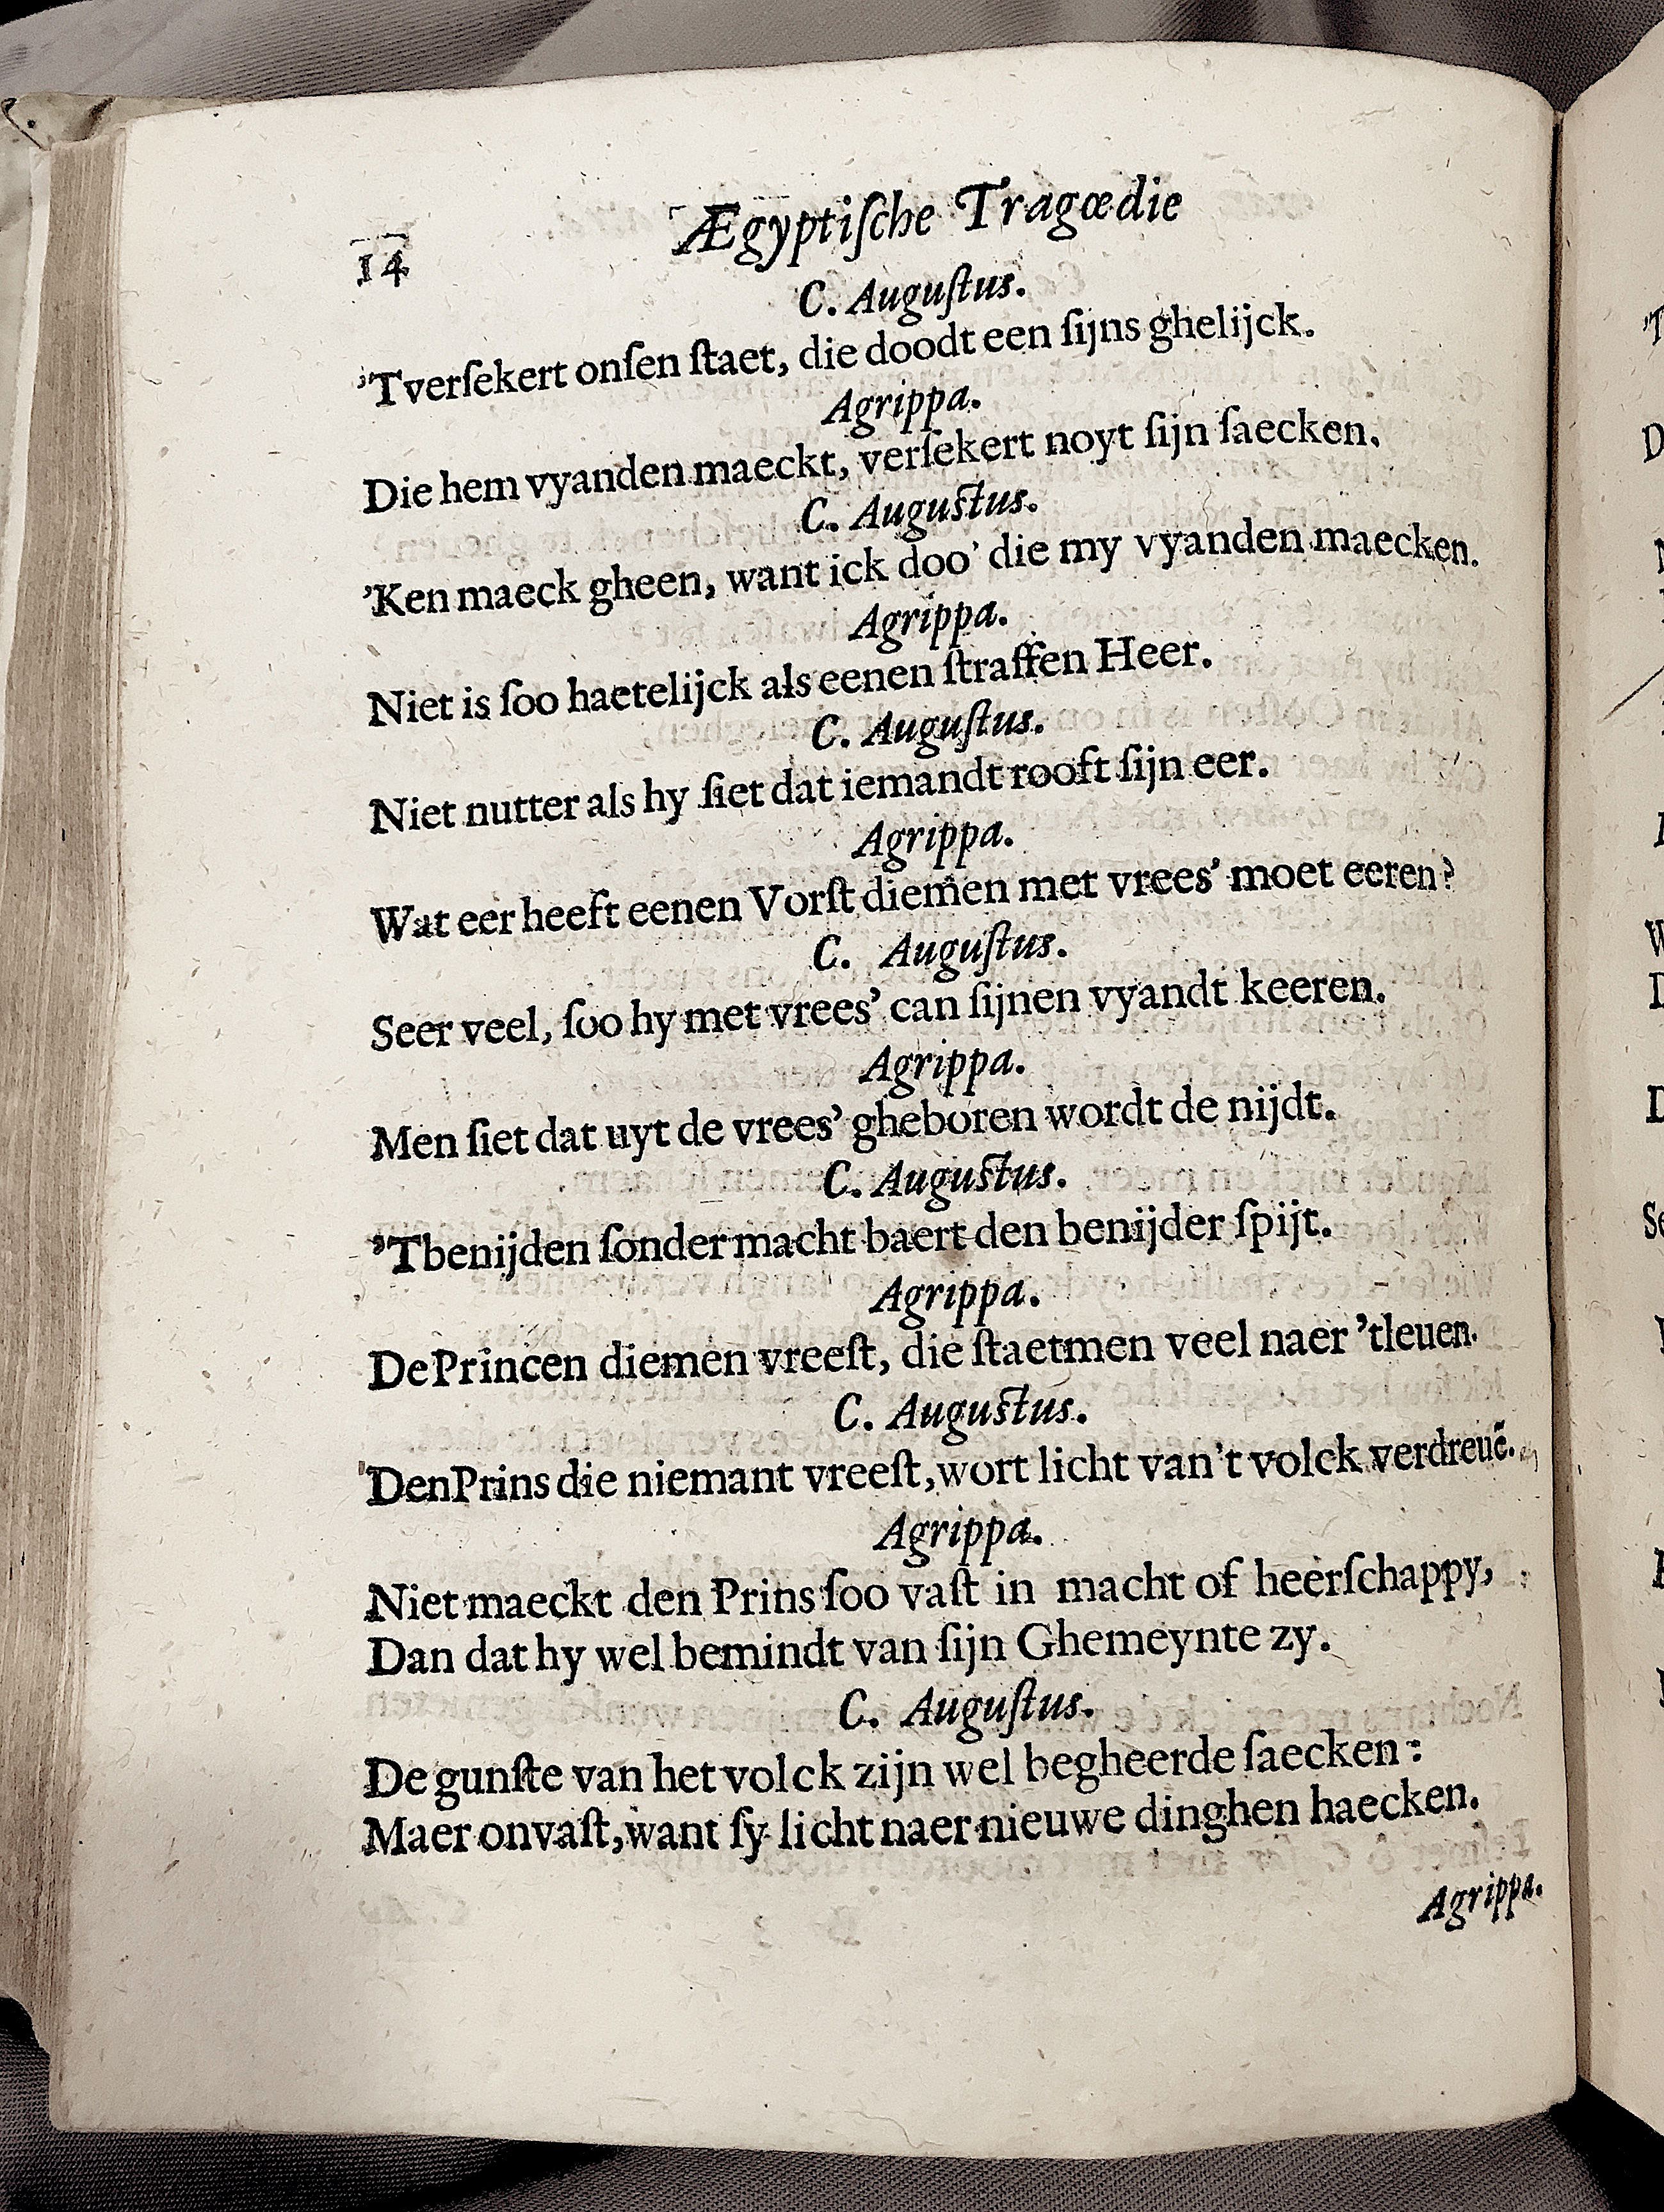 14 Ægyptiſche Tragœdie
C. Auguſtus.
'Tverſekert onſen ſtaet, die doodt een ſijns ghelijck.
Agrippa.
Die hem vyanden maeckt, verſekert noyt ſijn ſaecken.
C. Auguſtus.
'Ken maeck gheen, want ick doo' die my vyanden maecken.
Agrippa.
Niet is ſoo haetelijck als eenen ſtraffen Heer.
C. Auguſtus.
Niet nutter als hy ſiet dat iemandt rooft ſijn eer.
Agrippa.
Wat eer heeft eenen Vorſt diemen met vrees' moet eeren?
C. Auguſtus.
Seer veel, ſoo hy met vrees' can ſijnen vyandt keeren.
Agrippa.
Men ſiet dat uyt de vrees' gheboren wordt de nijdt.
C. Auguſtus.
'Tbenijden ſonder macht baert den benijder ſpijt.
Agrippa.
De Princen diemen vreeſt, die ſtaetmen veel naer 'tleuen.
C. Auguſtus.
Den Prins die niemant vreeſt, wort licht van't volck verdreuē.
Agrippa.
Niet maeckt den Prins ſoo vaſt in macht of heerſchappy,
Dan dat hy wel bemindt van ſijn Ghemeynte zy.
C. Auguſtus.
De gunſte van het volck zijn wel begheerde ſaecken:
Maer onvaſt, want ſy licht naer nieuwe dinghen haecken.
Agrippa.